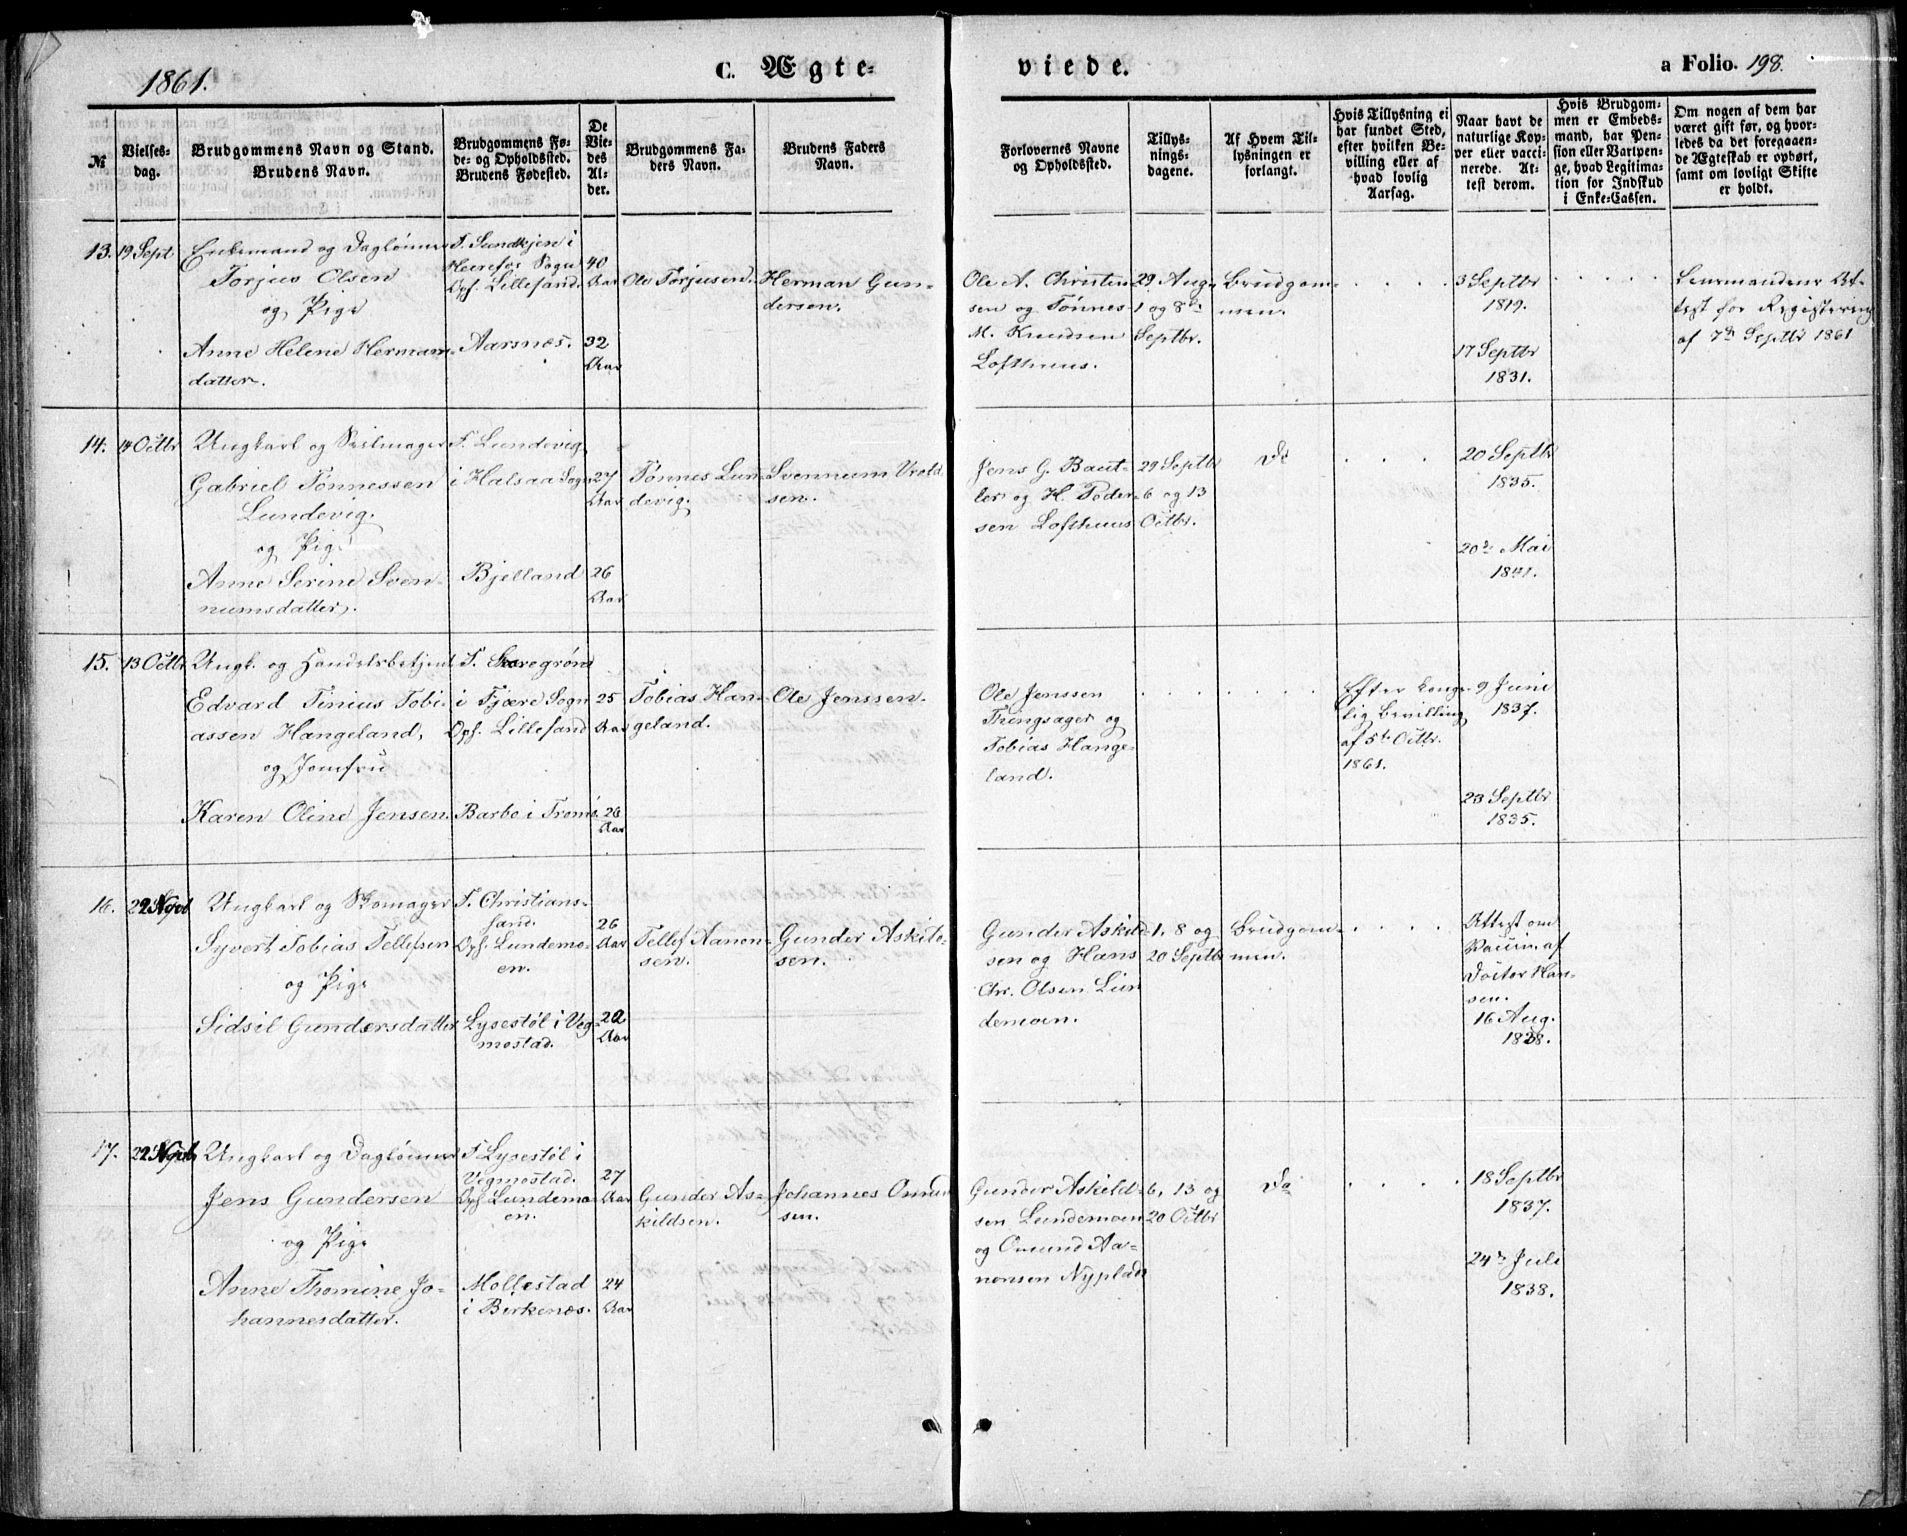 1861.
C. Ægte-
viede.
a Folio. 198.
№
Vielses-
dag.
Brudgommens Navn og Stand.
Brudens Navn.
Brudgommens Fø-
de- og Opholdssted.
Brudens Fødested.
De
Vie-
des
Al-
der.
Brudgommens Fa-
ders Navn.
Brudens Faders
Navn.
Forlovernes Navne
og Opholdssted.
Tillys-
nings-
dagene.
Af Hvem Til-
lysningen er
forlangt.
Hvis Tillysning ei
har fundet Sted,
efter hvilken Be-
villing eller af
hvad lovlig
Aarsag.
Naar havt de
naturlige Kop-
per eller vacci-
nerede. At-
test derom.
Hvis Brudgom-
men er Embeds-
mand, har Pen-
sion eller Vartpen-
ge, hvad Legitima-
tion for Indskud
i Enke-Cassen.
Om nogen af dem har
været gift før, og hvor-
ledes da det foregaaen-
de Ægteskab er ophørt,
samt om lovligt Skifte
er holdt.
13. 19 Sept
Enkemand og Daglønner
Torjus Olsen
og Pige
Anne Helene Herman-
datter.
F. Sandkjen i
Heirefos Sogn
Opf. Lillesand.
Aarsnes.
40
Aar
32
Aar
Ole Torjusen.
Herman Gun-
dersen.
Ole A. Christen-
sen og Tønnes
M. Knudsen
Lofthuus.
29 Aug.
1 og 8de
Septbr.
Brudgom-
men.
3 Septbr
1819.
17 Septbr
1831.
Lensmandens At-
test for Registering
af 7de Septbr 1861
14. 14 Octbr
Ungkarl og Seilmager
Gabriel Tönnessen
Lundevig.
og Pige
Anne Serine Sven-
numsdatter.
F. Lundevig
i Halsaa Sogn
Bjelland
27
Aar
26
Aar
Tønnes Lun-
devig
Svennum Vrold
sen.
Jens G. Baut-
ler og H. Peder-
sen Lofthuus
29 Septbr
6 og 13
Octbr.
Do
20 Septbr
1835.
20de Mai
1841.
15. 13 Octbr
Ungk. og Handelsbetjent
Edvard Tinius Tobi-
assen Hangeland,
og Jomfru
Karen Oline Jensen.
i Fjære Sogn
Opf. Lillesand
Barbo i Tromø.
25
Aar
26
Aar
Tobias Han-
geland.
Ole Jenssen.
Ole Jenssen
Thingsager og
Tobias Hange-
land.
Efter konge-
lig Bevilling
af 5te Octbr.
1861.
9 Juni
1837.
23 Septbr
1835.
16.
Ungkarl og Skomager
Syvert Tobias Tellefsen
og Pige
Sidsil Gundersdatter
F. Christians-
sand.
Opf. Lundemo-
en.
Lysestöl i Veg-
mostad.
26
Aar
Aar
Tellef Aanon-
sen.
Gunder Askild-
sen.
Gunder Askild-
sen og Hans
Chr. Olsen Lun
demoen.
1, 8 og
20 Septbr
Brudgom-
men.
Attest om
Vaccin. af
Doctor Han-
sen.
16 Aug.
1838.
17.
Ungkarl og Daglønner
Jens Gundersen
og Pige
Anne Thomine Jo-
hannesdatter.
F Lysestöl i
Vegmostad.
Opf Lundemo-
en.
Mollestad
i Birkenæs.
27
Aar
24
Aar
Gunder As-
kildsen.
Johannes Omun
sen.
Gunder Askild-
sen Lundemoen
og Omund Aa-
nonsen Nyplads
6, 13 og
20 Octbr
Do
18 Septbr
1837.
24de Juli
1838.